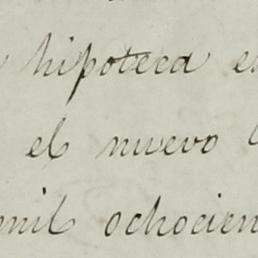 hipoteca
el nuevo
mil ochocien